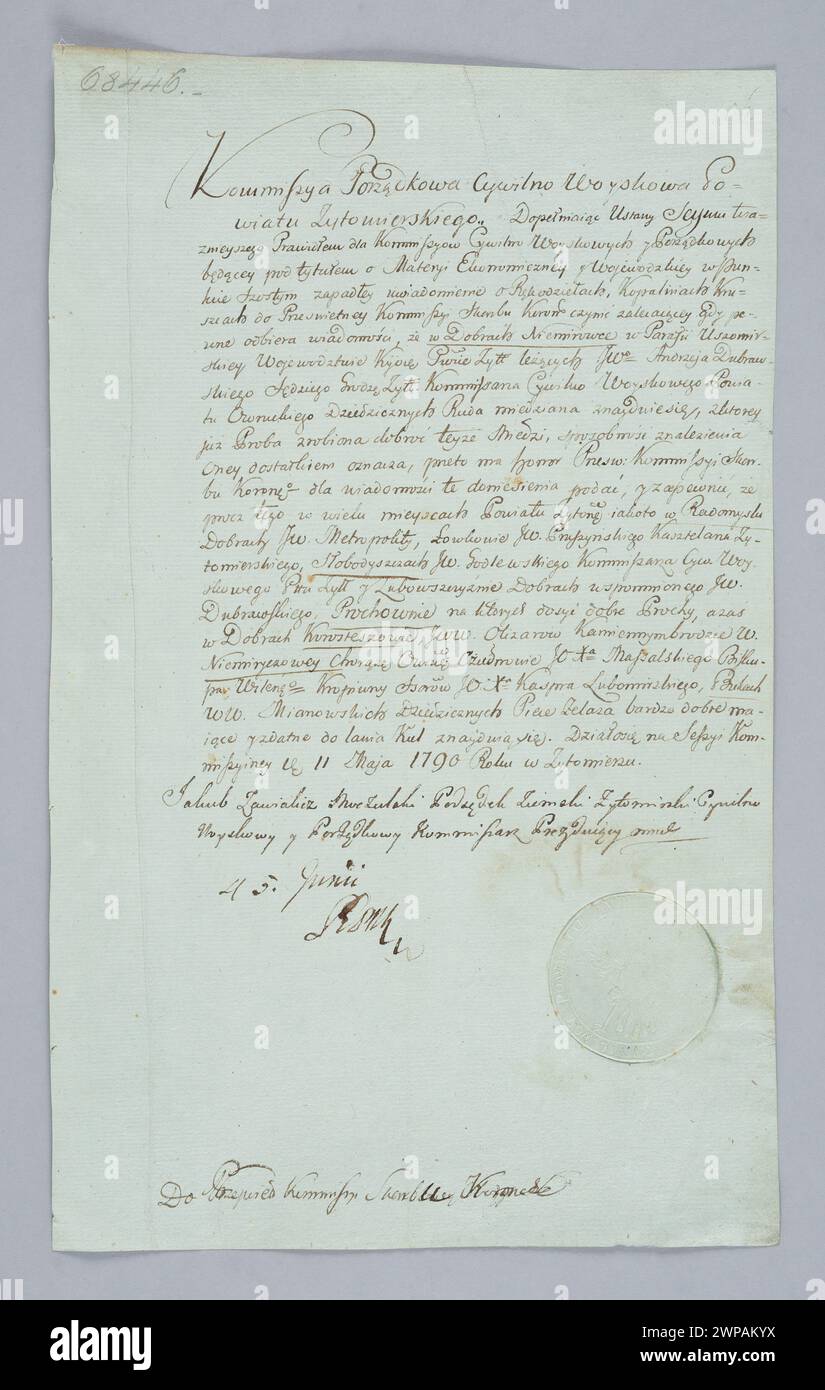 68446.-
Kommissya Porządkowa Cywilno Woyskowa Po-
wiatu Zytomierskiego„ Dopełniaiąc Ustawy Seymu tera-
znieyszego Prawidłem dla Kommissyow Cywilno Woyskowych y Porządkowych
będącey pod tytułem o Materyi Ekonomiczney y Wojewodzkiey w Pun-
kcie szostym zapadłey uwiadomienie o Rękodziełach, Kopalniach Kru-
szcach do Prześwietney Kommissyi Skarbu Koronę czynić zalecaiącey Gdy pe-
wne odbiera wiadomości, że w Dobrach Niemirowce w Parafii Uszomir-
skiey Wojewodztwie Kijow Pwcie Zytt leżących Jwo Andrzeja Dubraw-
skiego Sędziego Grodz Zytt Kommissarza Cywilno Woyskowego Powia-
tu Owruckiego Dziedzicznych Ruda miedziana znayduie się, z ktorey
już Proba zrobiona dobroć teyże Miedzi, sposobność znalezienia
Oney dostatkiem oznacza, przeto ma honor Przesw: Kommissyi Skar-
bu Koronę dla wiadomości te doniesienia podać, y zapewnić, że
procz tego w wielu mieyscach Powiatu Zytom jakoto w Radomyslu
Dobrach Jw. Metropolity, Łowkowie Jw. Pruszyńskiego Kasztelana Zy-
tomierskiego, Słobodyszczach Jw. Godlewskiego Kommissarza Cyw. Woy-
skowego Ptu Zytt y Lubowszczyźnie Dobrach wspomnionego Jw.
Dubrawskiego, Prochownie na ktorych dosyć dobre Prochy, a zas
w Dobrach Korosteszowie, Jww. Olizarow Kamiennymbrodzie W.
Niemiryczowey Choręż Owru, Czudnowie JO Xa Massalskiego Bisku-
pa Wilen Kropiwny Isaow JO Xa Kaspra Lubomirskiego,
WW. Mianowskich Dziedzicznych Piece żelaza bardzo dobre ma-
iące y zdatne do lania Kul znayduią się. Działo się na Sessyi Kom-
missyiney D 11 Maja 1790 Roku w Zytomierzu.
Jakub Zawialicz Moczulski Podsędek Ziemski Zytomirski Cywilno
Woyskowy y Porządkowy Kommissarz Prezyduiący mmp
4 5. Junii
Do Prześwied Kommissyi Skarbu Koronne
alamy
alamy
Image ID: 2WPAKYX
www.alamy.com